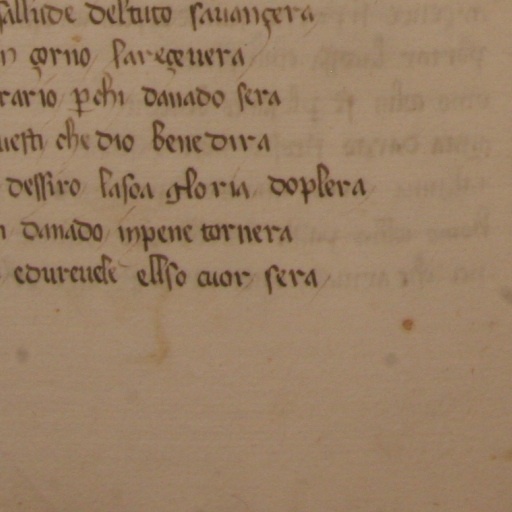 salude del tuto sauançera
n çorno lareçeuera
rario ꝑchi danado sera
uesti che dio bene dira
dessiro lasoa gloria doplera
danado inpene tornera
edureuele ellso cuor sera